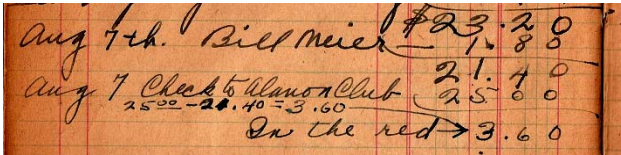 $23.20
Aug 7th. Bill Meier — 1.80
21.40
Aug 7 Check to Alanon Club 25 00
25 00 - 21.40 = 3.60
In the red → 3.60